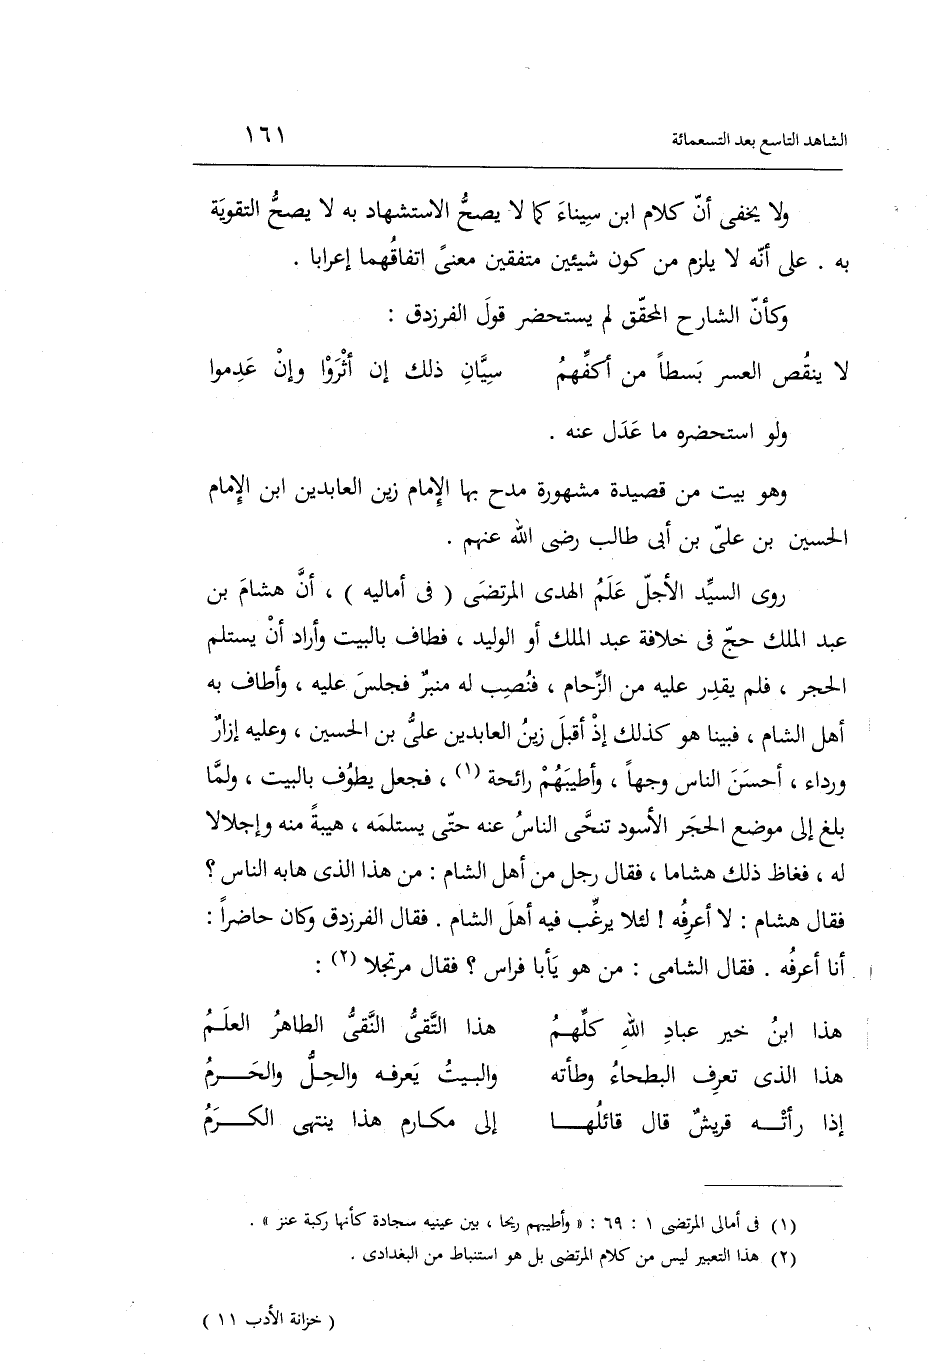 الشاهد التاسع بعد التسعمائة ١٦١
ولا يخفى أنّ كلام ابن سِيناءَ كما لا يصحُّ الاستشهاد به لا يصحُّ التقويَة
به . على أنّه لا يلزم من كون شيئين متفقين معنىً اتفاقُهما إعرابا .
وكأنّ الشارح المحقّق لم يستحضر قولَ الفرزدق :
لا ينقُص العسر بَسطاً من أكفِّهمُ سِيَّانِ ذلك إن أثْرَوْا وإنْ عَدِموا
ولو استحضره ما عَدَل عنه .
وهو بيت من قصيدة مشهورة مدح بها الإمام زين العابدين ابن الإمام
الحسين بن علىّ بن أبى طالب رضى الله عنهم .
روى السيِّد الأجلّ عَلَمُ الهدى المرتضَى ( فى أماليه ) ، أنَّ هشامَ بن
عبد الملك حجّ فى خلافة عبد الملك أو الوليد ، فطاف بالبيت وأراد أنْ يستلم
الحجر ، فلم يقدِر عليه من الزِّحام ، فنُصِب له منبرٌ فجلسَ عليه ، وأطاف به
أهل الشام ، فبينا هو كذلك إذْ أقبلَ زينُ العابدين علىُّ بن الحسين ، وعليه إزارٌ
ورداء ، أحسَنَ الناس وجهاً ، وأطيبَهُمْ رائحة (١) ، فجعل يطوُف بالبيت ، ولمَّا
بلغ إلى موضع الحجَر الأسود تنحَّى الناسُ عنه حتّى يستلمَه ، هيبةً منه وإجلالا
له ، فغاظ ذلك هشاما ، فقال رجل من أهل الشام : من هذا الذى هابه الناس ؟
فقال هشام : لا أعرِفُه ! لئلا يرغِّب فيه أهلَ الشام . فقال الفرزدق وكان حاضراً :
أنا أعرفُه . فقال الشامى : من هو يَأبا فراس ؟ فقال مرتجلا (٢) :
هذا ابنُ خير عبادِ اللهِ كلِّهمُ هذا التَّقىُّ النَّقىُّ الطاهرُ العلَمُ
هذا الذى تعرِف البطحاءُ وطأته والبيتُ يَعرفه والحِلُّ والحَرمُ
إذا رأتْه قريشٌ قال قائلُها إلى مكارم هذا ينتهى الكرَمُ
(١) فى أمالى المرتضى ١ : ٦٩ : « وأطيبهم ريحا ، بين عينيه سجادة كأنها ركبة عنز » .
(٢) هذا التعبير ليس من كلام المرتضى بل هو استنباط من البغدادى .
( خزانة الأدب ١١ )